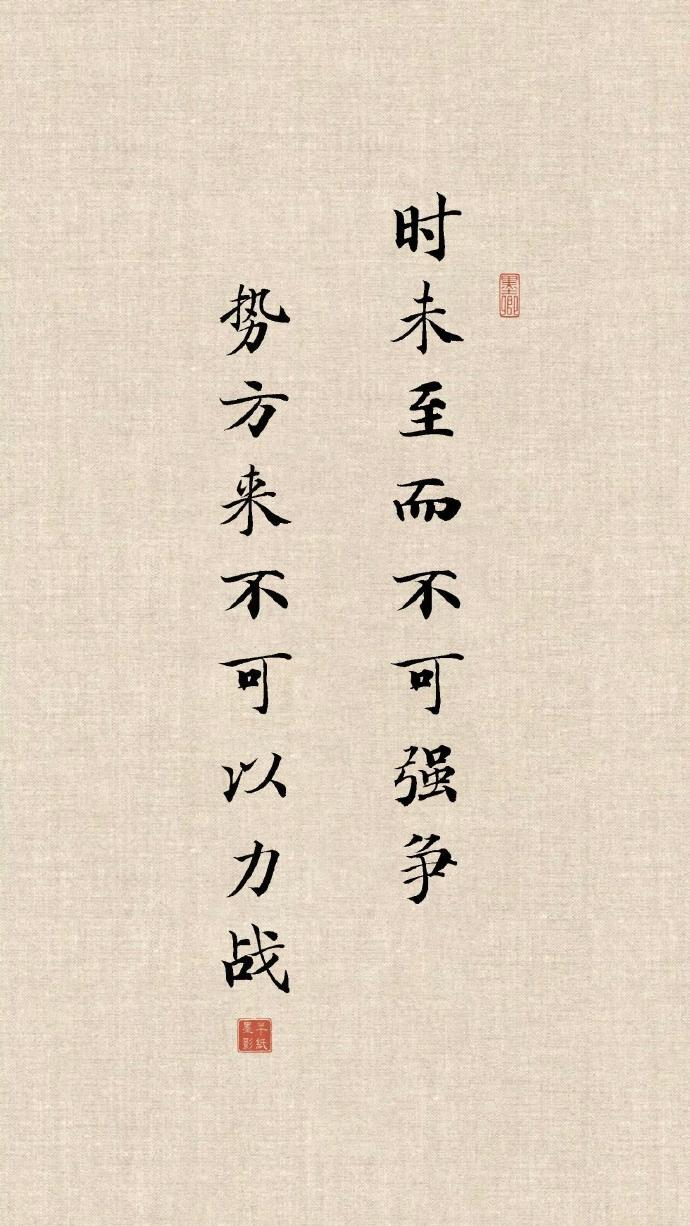 时未至而不可强争
势方来不可以力战
墨卿
半纸墨影